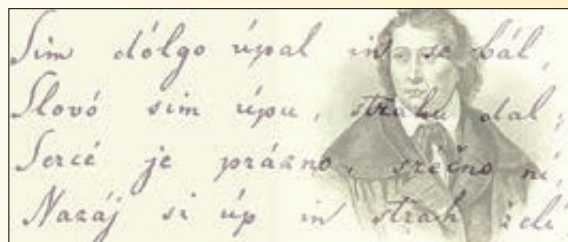 Sim dólgo úpal in se bál,
Slovó sim úpu, strahu dal;
Sercé je prázno, srečno ní,
Nazáj si úp in strah želí